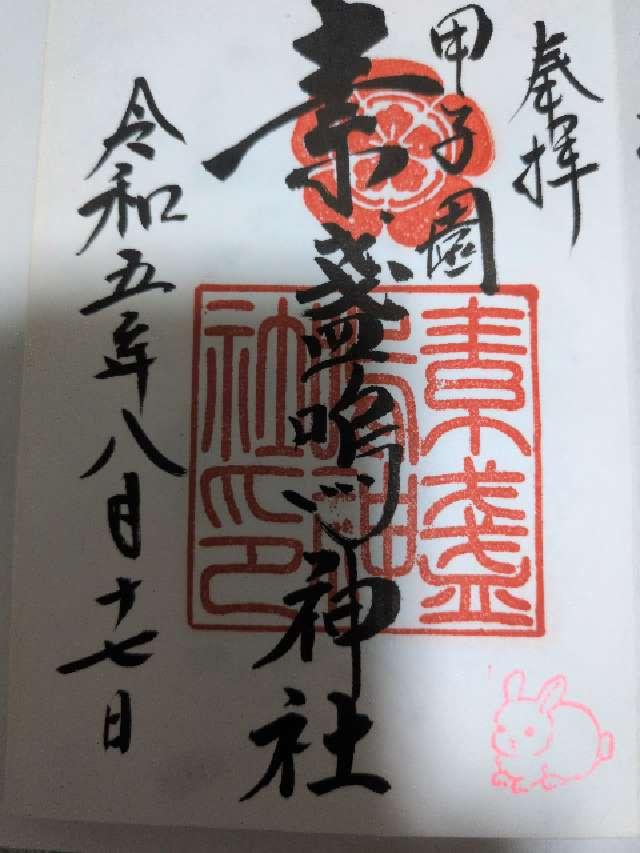 奉拝
甲子園
素盞嗚神社
令和五年八月十七日
素盞
嗚神
社印